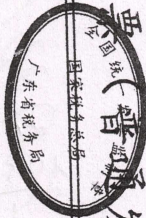 票(普通
全国统一发票监制章
国家税务总局
广东省税务局